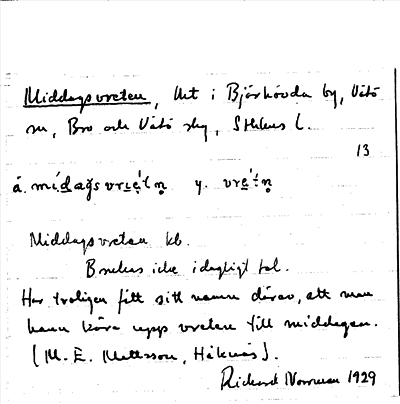 Middagsvreten, Vret i Björhövda by, Vätö
sn, Bro och Vätö skg, Sthlms l.
13
á. mídağs vrɛ̀t́n̥ y. vrɛ̀́:tn̥
Middagsvreten kb.
Brukas icke i dagligt tal.
Har troligen fått sitt namn därav, att man
hann köra upp vreten till middagen.
(M. E. Mattsson, Håknäs).
Rickard Norrman 1929